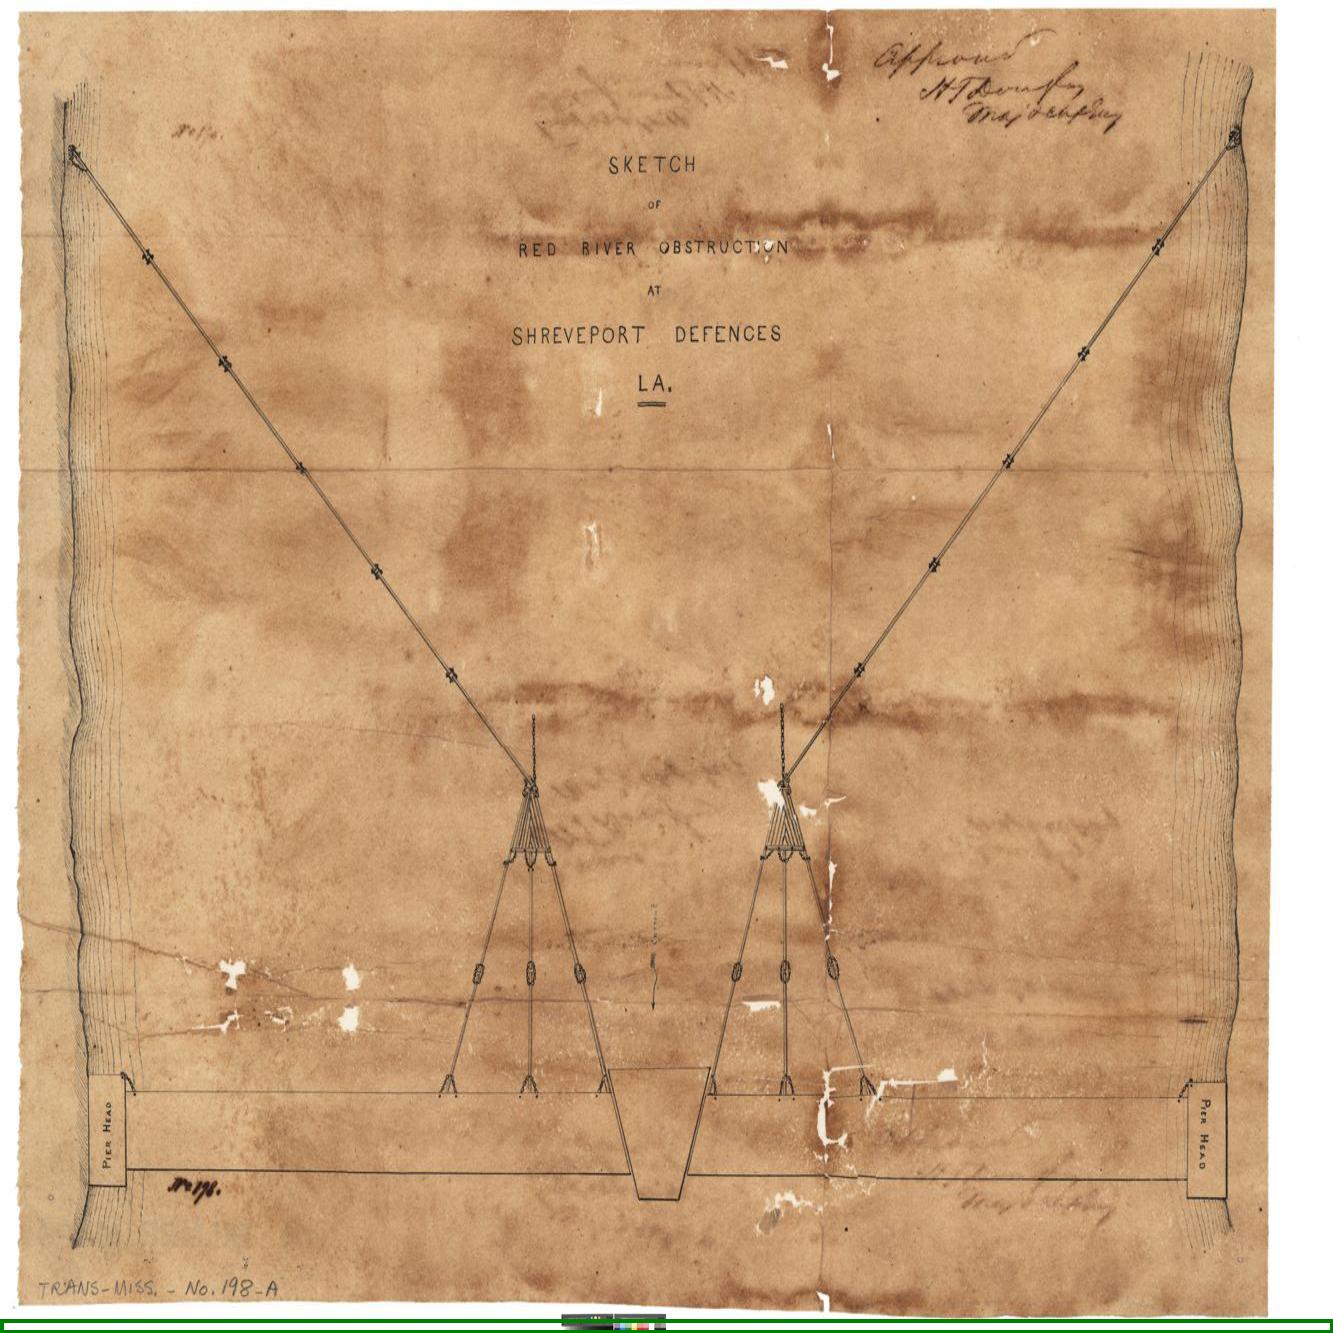 Approved
H T Douglas
Maj & Ch Eng
SKETCH
OF
RED RIVER OBSTRUCTION
AT
SHREVEPORT DEFENCES
LA.
PIER HEAD
PIER HEAD
No 198.
TRANS-MISS. - No. 198-A